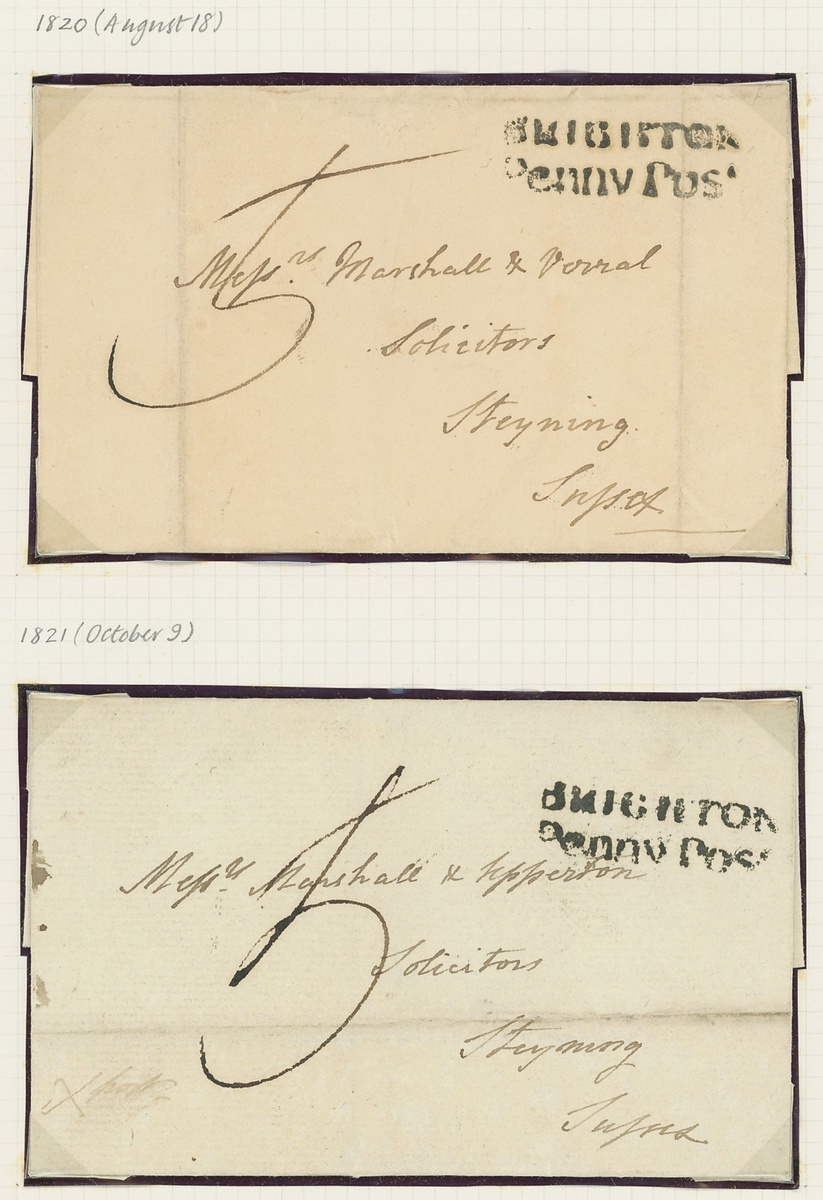 1820 (August 18)
BRIGHTON
Penny Post
5
Messrs Marshall & Vorral
Solicitors
Steyning
Sussex
1821 (October 9)
BRIGHTON
Penny Post
5
Messrs Marshall & Upperton
Solicitors
Steyning
Sussex